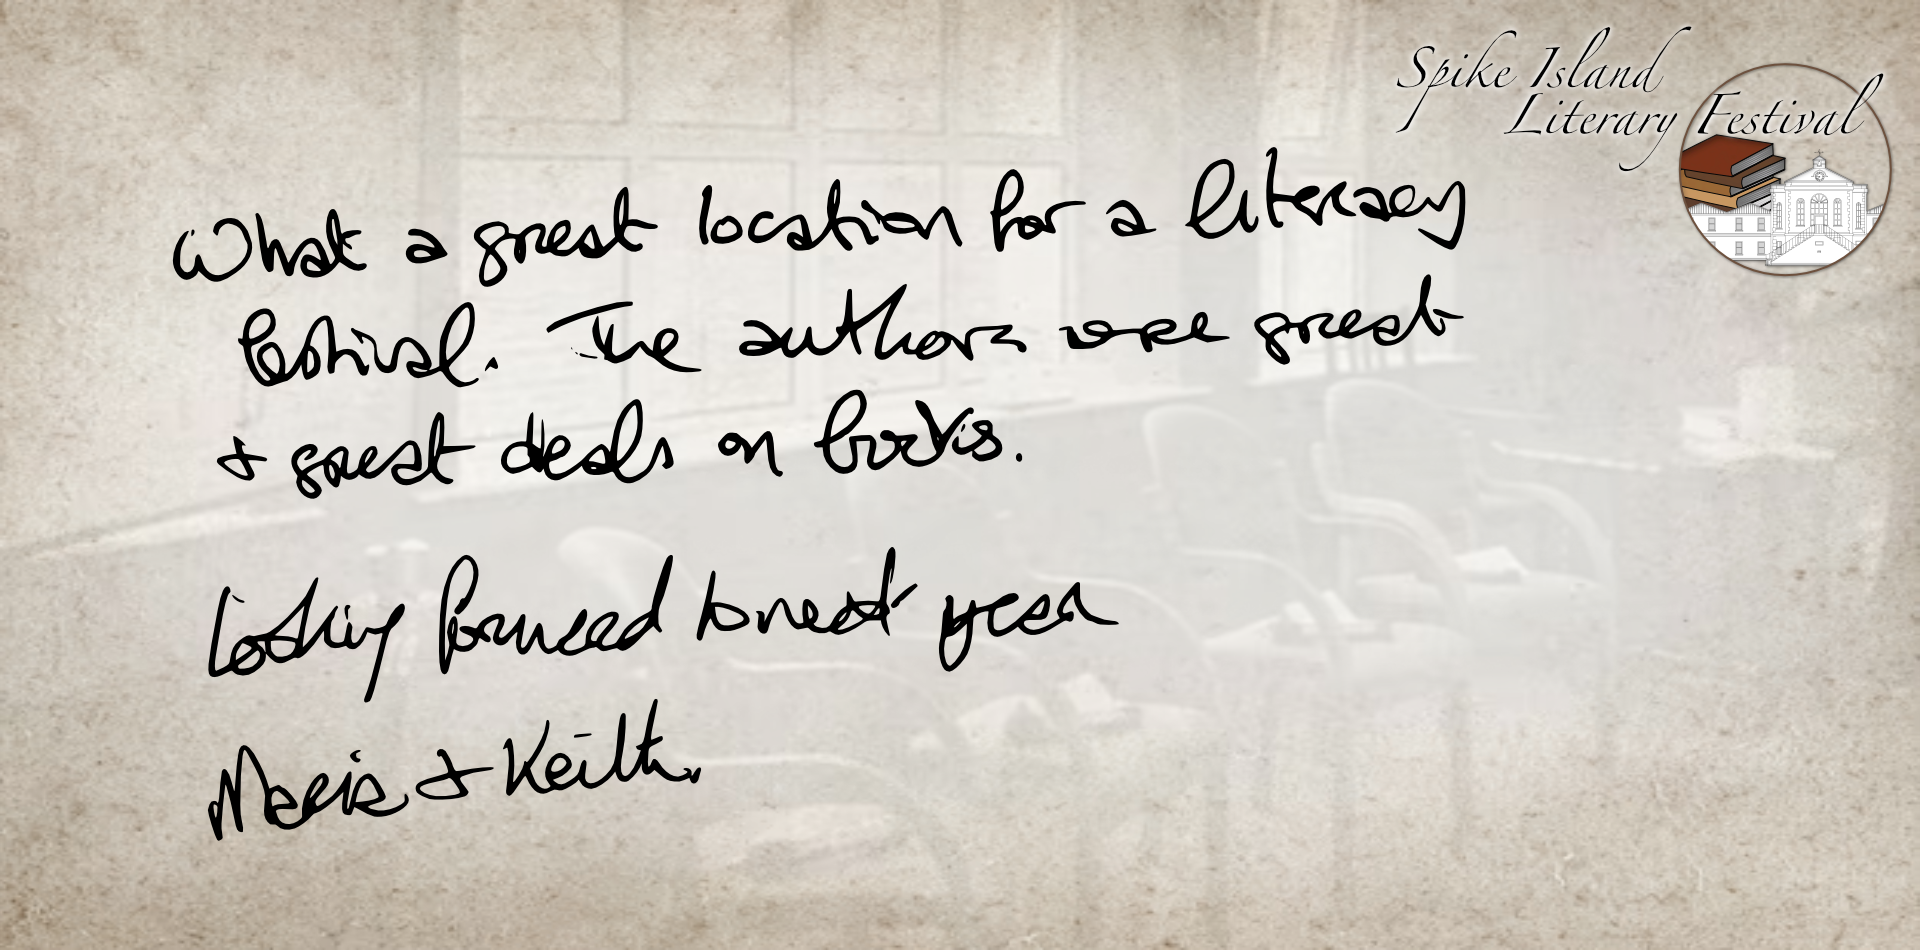 Spike Island
Literary Festival
What a great location for a literary
festival. The authors were great
+ great deals on books.
Looking forward to next year
Maria + Keith.